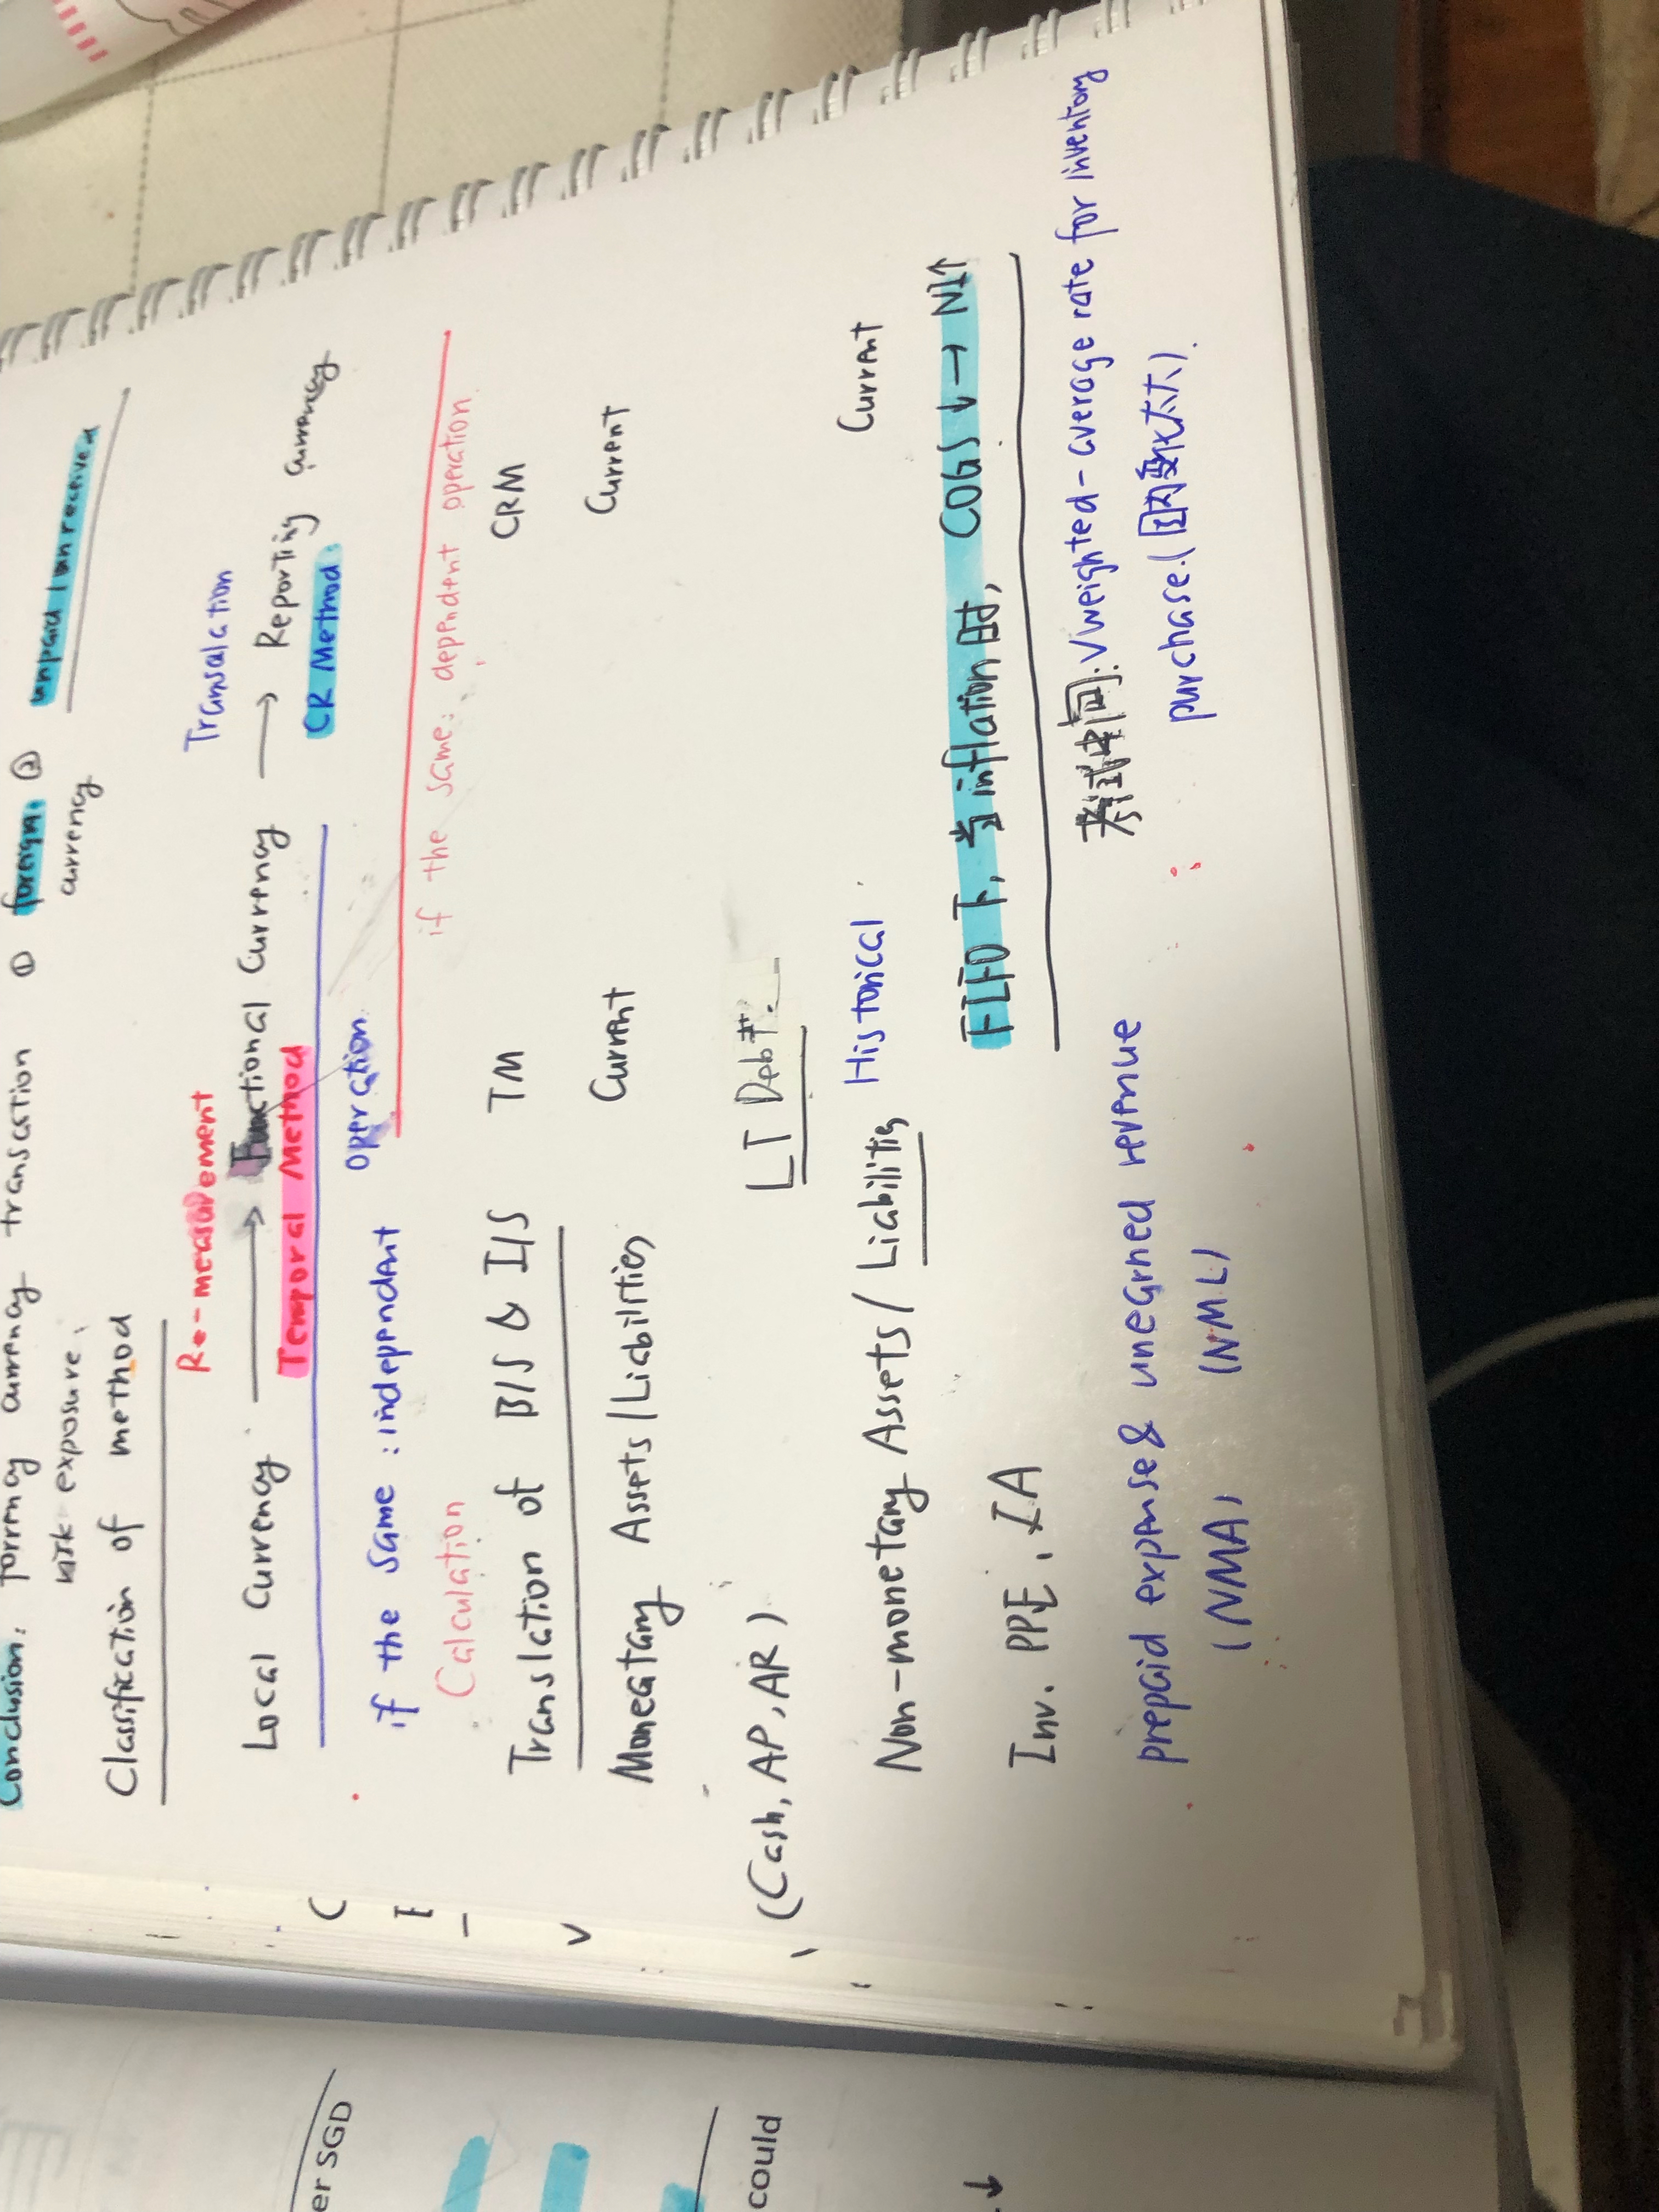 Conclusion: foreign currency transaction ① foreign ② unpaid / unreceived
currency
risk exposure.
Classification of method
Re-measurement Transalation
Local Currency → Functional Currency → Reporting Currency
Temporal Method CR Method.
if the same: independent operation
if the same: dependent operation
Calculation
Translation of B/S & I/S TM CRM
Monegtary Assets/Liabilities Current Current
(Cash, AP, AR) LT Debt.
Non-monetary Assets/Liabilitis Historical Current
Inv. PPE, IA FIFO下, 当inflation时, COGS↓ → NI↑
prepaid expense & unegrned revenue
(NMA) (NML)
考试中问: Weighted-average rate for inventory
purchase. (因变化太大).
er SGD
could
↓